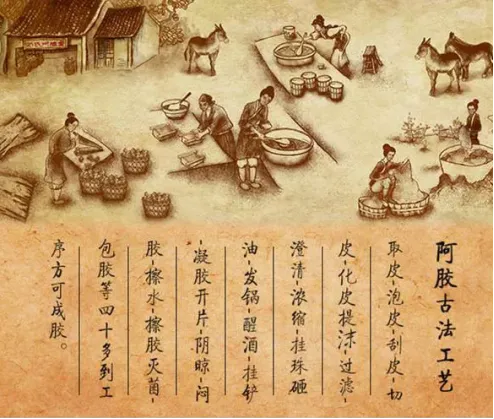 阿胶古法工艺
取皮-泡皮-刮皮-切
皮-化皮提沫-过滤-
澄清-浓缩-挂珠砸
油-发锅-醒酒-挂铲
-凝胶开片-阴晾-闷
胶-擦水-擦胶灭菌-
包胶等四十多到工
序方可成胶。